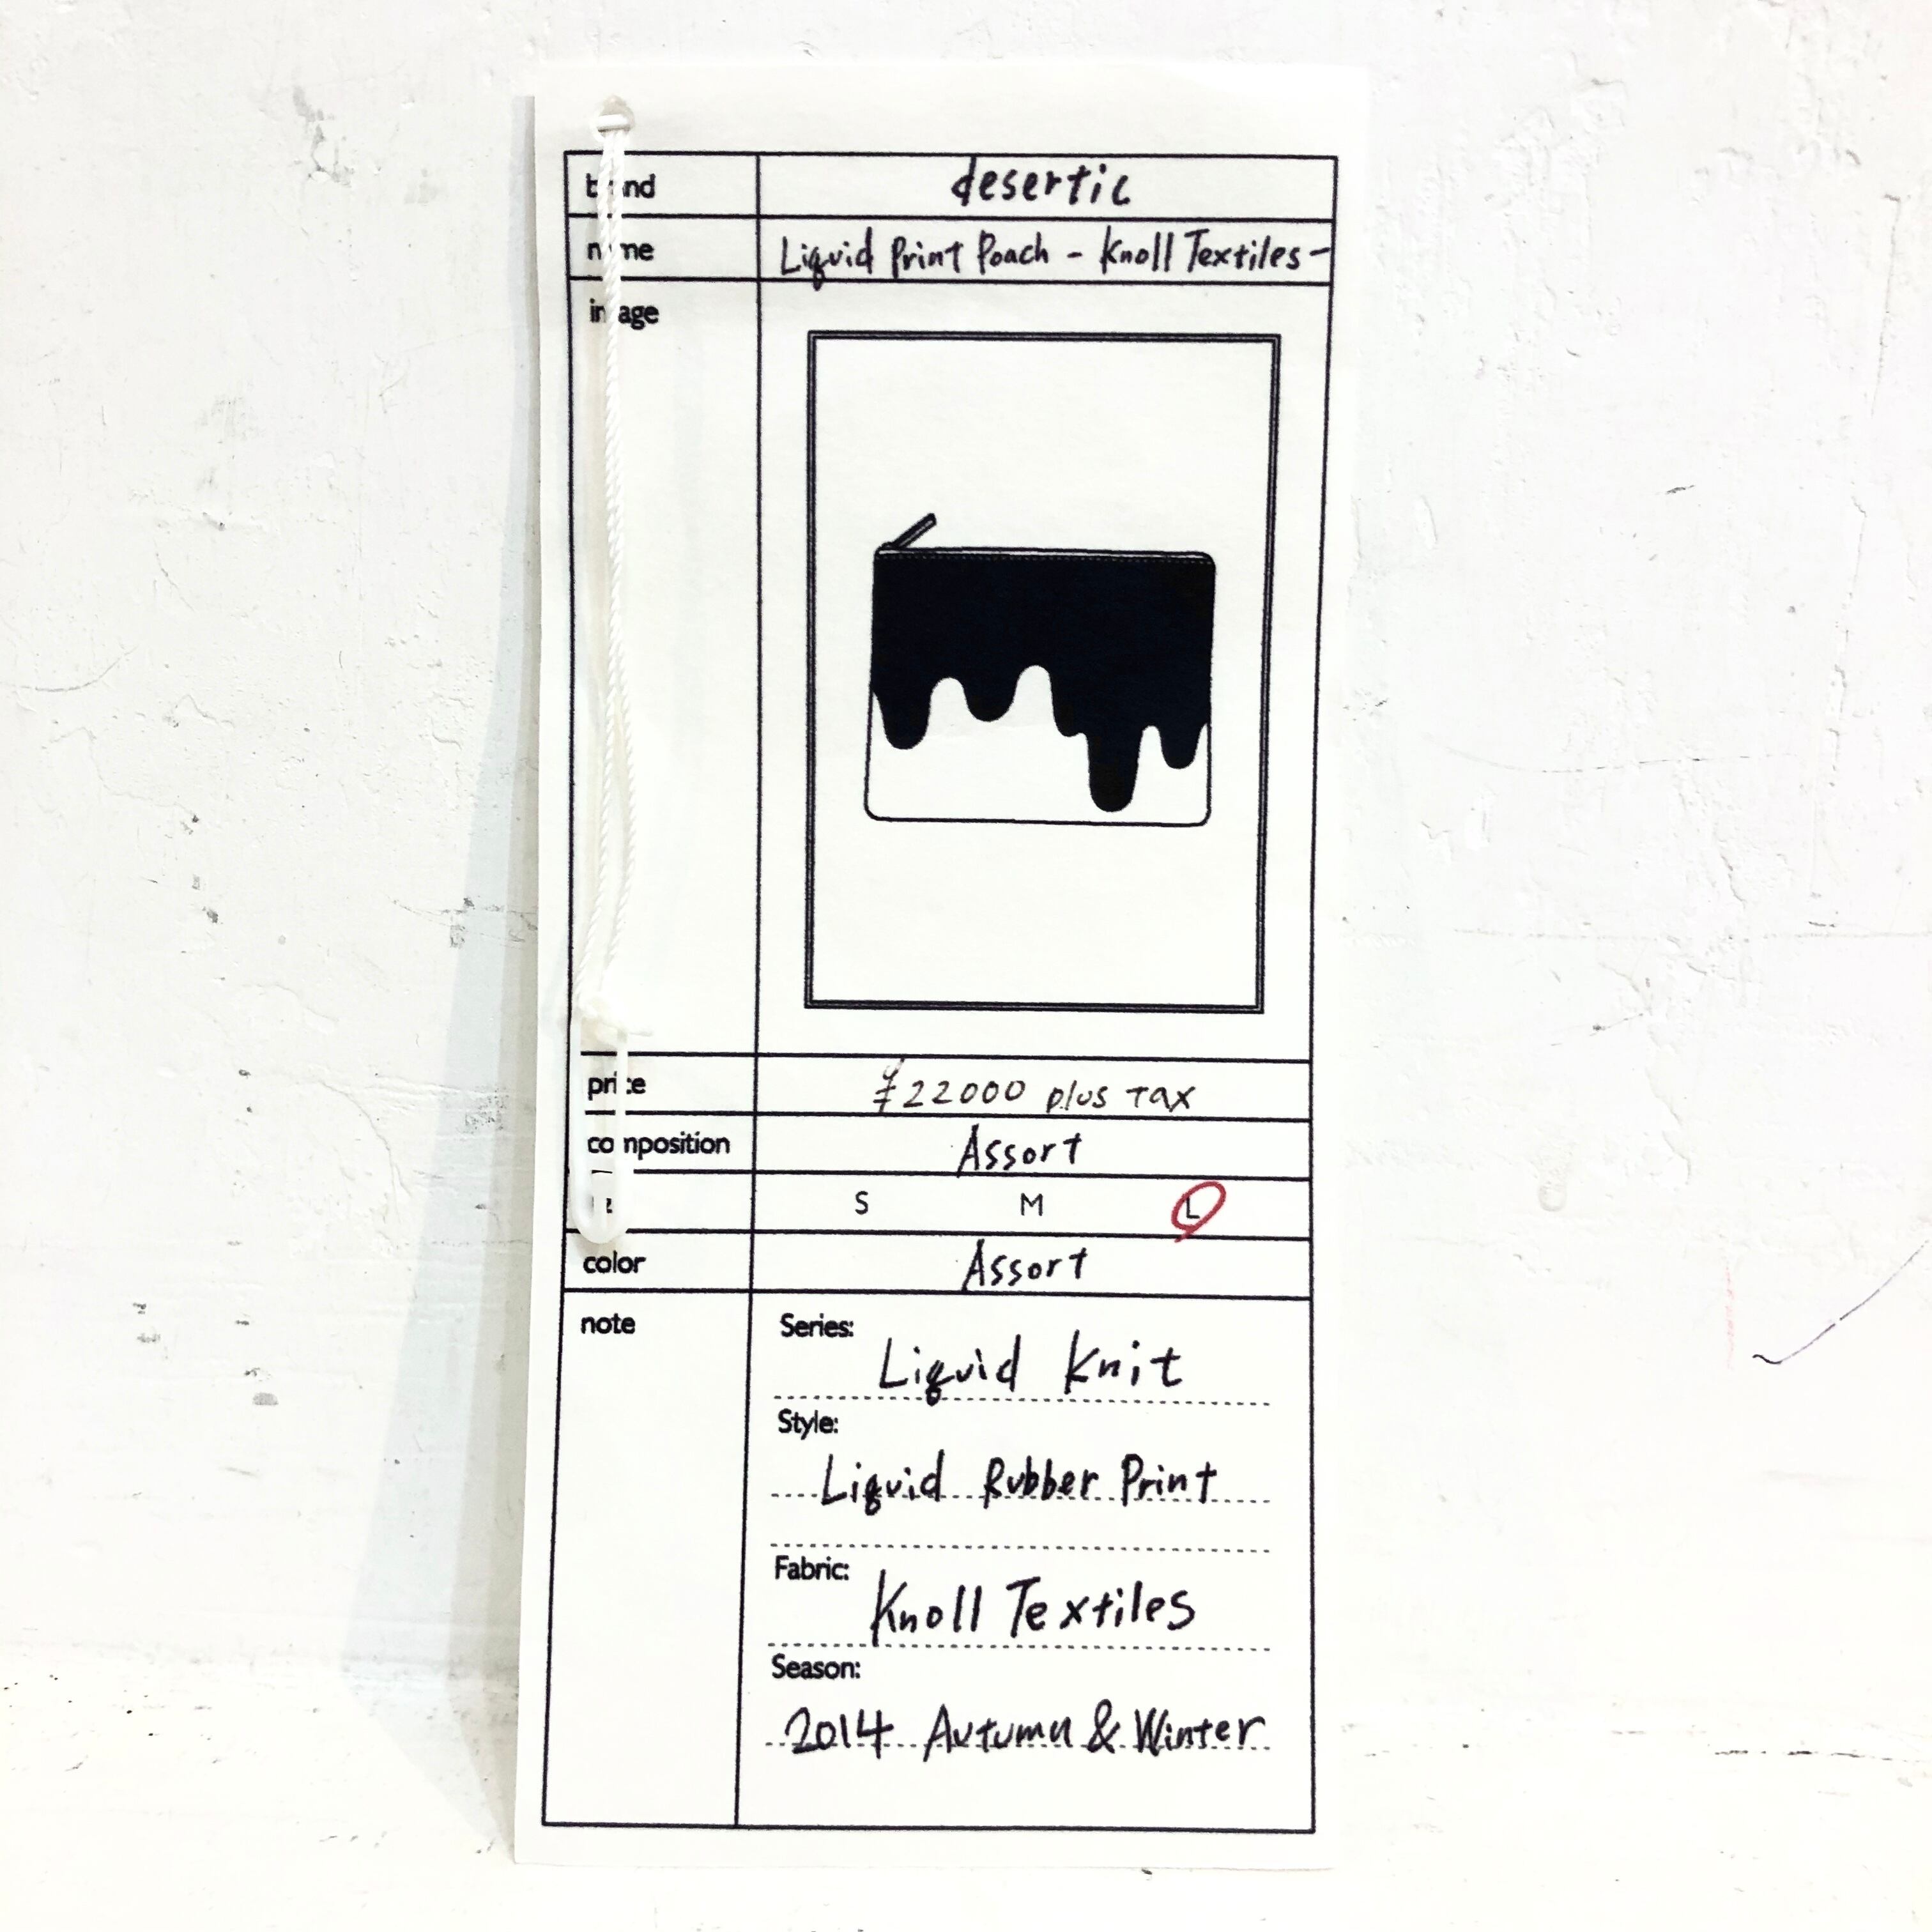 brand desertic
name Liquid Print Poach - Knoll Textiles -
image
price ¥22000 plus tax
composition Assort
S M L
color Assort
note Series:
Liquid Knit
Style:
Liquid Rubber Print
Fabric:
Knoll Textiles
Season:
2014 Autumn & Winter